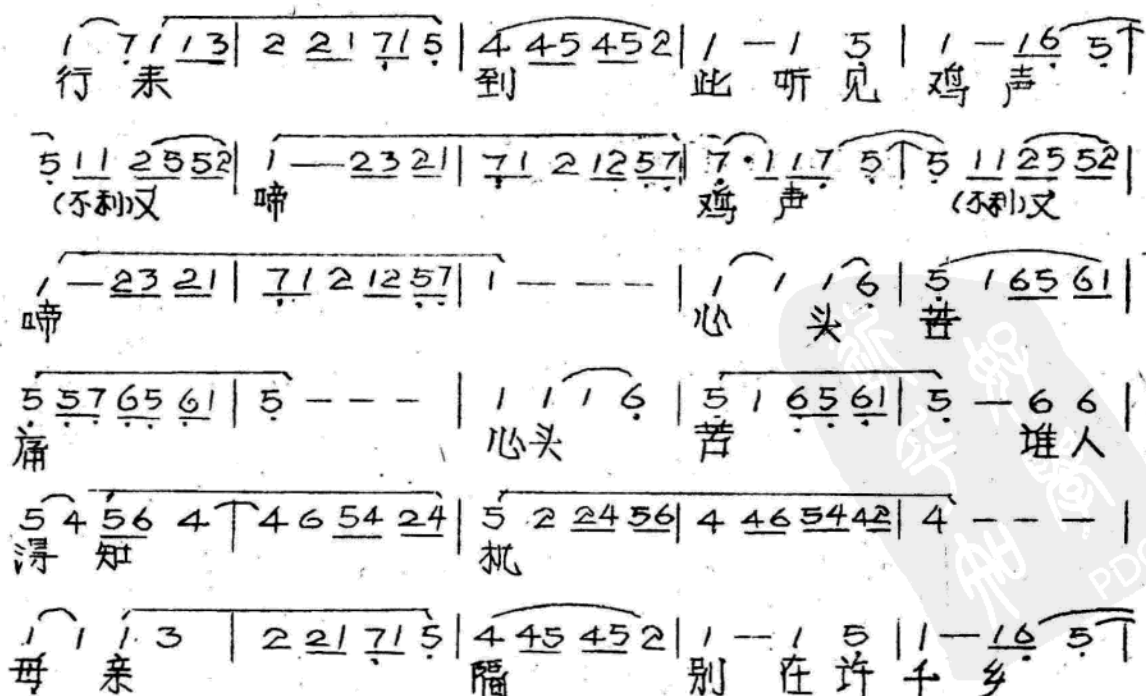 1 7 1 1 3 | 2 2 1 7 1 5 | 4 4 5 4 5 2 | 1 — 1 5 | 1 — 1 6 5
行来 到 此 听见 鸡声
5 1 1 2 5 5 2 | 1 — 2 3 2 1 | 7 1 2 1 2 5 7 | 7 · 1 1 7 5 | 5 1 1 2 5 5 2 |
(不利)又 啼 鸡声 (不利)又
1 — 2 3 2 1 | 7 1 2 1 2 5 7 | 1 — — — | 1 1 1 6 | 5 1 6 5 6 1 |
啼 心 头 苦
5 5 7 6 5 6 1 | 5 — — — | 1 1 1 6 | 5 1 6 5 6 1 | 5 — 6 6 |
痛 心头 苦 谁人
5 4 5 6 4 4 6 5 4 2 4 | 5 2 2 4 5 6 | 4 4 6 5 4 4 2 | 4 — — — |
知 机
1 1 1 · 3 | 2 2 1 7 1 5 | 4 4 5 4 5 2 | 1 — 1 5 | 1 — 1 6 5
母 亲 隔 别 在许 千乡
PDG